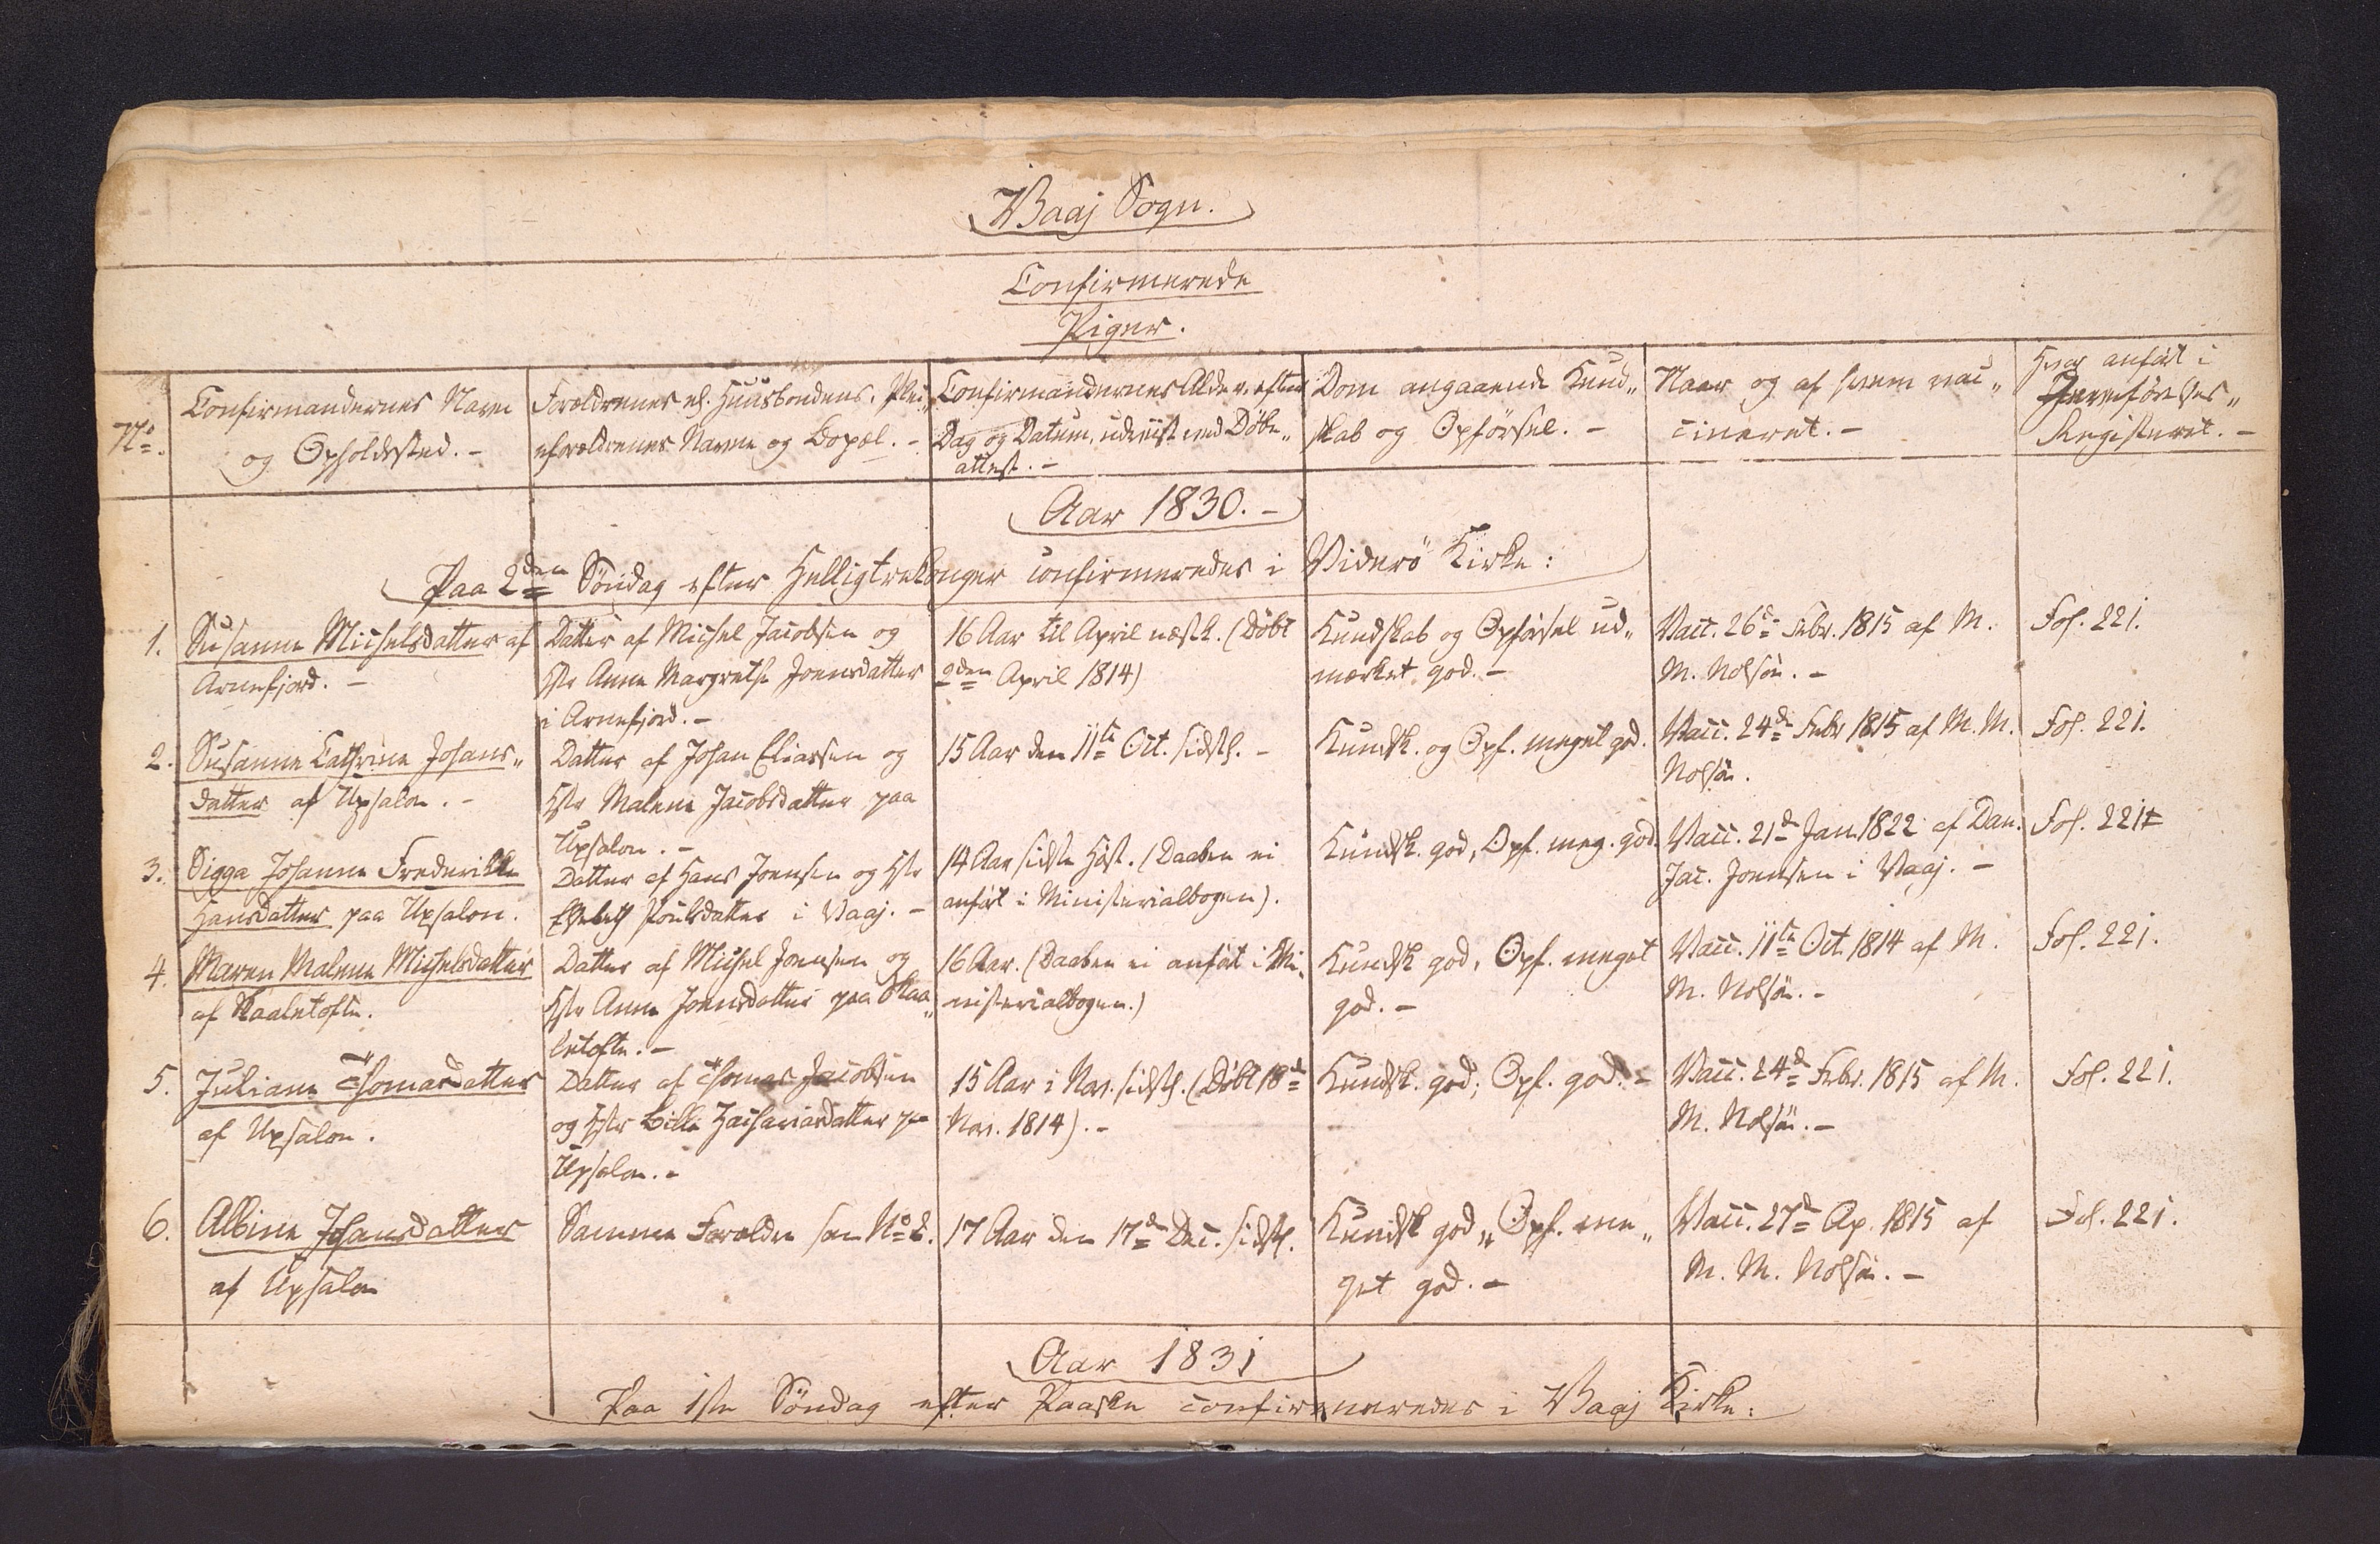 Vaaj Sogn.
Confirmerede
Piger.
No.
Confirmandernes Navn
og Opholdssted. -
Forældrenes el. Huusbondens, Plei„
eforældrenes Navne og Bopæl. -
Confirmandernes Alder, efter
Dag og Datum, udviist ved Døbe„
attest. -
Dom angaaende Kund„
skab og Opførsel. -
Naar og af hvem vac„
cineret. -
Hvor anført i
Jevnførelses„
Registeret. -
Aar 1830. -
Paa 2den Søndag efter Helligtrekonger confirmeredes i Viderø Kirke:
1.
Susanne Michelsdatter af
Arnefjord. -
Datter af Michel Jacobsen og
Hstr Anne Margrethe Joensdatter
i Arnefjord. -
16 Aar til April næstk. (Døbt
9den April 1814)
Kundskab og Opførsel ud„
mærket god. -
Vacc. 26de Febr. 1815 af M.
M. Nolsøe. -
Fol. 221.
2.
Susanne Cathrine Johans„
datter af Upsalon. -
Datter af Johan Eliassen og
Hstr Malene Jacobsdatter paa
Upsalon. -
15 Aar den 11te Oct. sidstl. -
Kundsk. og Opf. meget god.
Vacc. 24de Febr 1815 af M. M.
Nolsøe.
Fol. 221.
3.
Sigga Johanne Frederikke
Hansdatter paa Upsalon.
Datter af Hans Joensen og Hstr
Elsebeth Poulsdatter i Vaaj. -
14 Aar sidste Høst. (Daaben ei
anført i Ministerialbogen).
Kundsk. god, Opf. meg. god.
Vacc. 21de Jan. 1822 af Dan.
Jac. Joensen i Vaaj. -
Fol. 221
4.
Maren Malene Michelsdatter
af Kaaletofte.
Datter af Michel Joensen og
Hstr Anne Joensdatter paa Kaa„
letofte. -
16 Aar. (Daaben ei anført i Mi„
nisterialbogen.)
Kundsk god, Opf. meget
god. -
Vacc. 11te Oct. 1814 af M.
M. Nolsøe. -
Fol. 221.
5.
Juliane Thomasdatter
af Upsalon.
Datter af Thomas Jacobsen
og Hstr Bille Zachariasdatter paa
Upsalon. -
15 Aar i Nov. sidstl. (Døbt 18de
Nov. 1814). -
Kundsk. god; Opf. god. -
Vacc. 24de Febr. 1815 af M.
M. Nolsøe. -
Fol. 221.
6.
Albine Johansdatter
af Upsalon
Samme Forældre som No 2.
17 Aar den 17de Dec. sidstl.
Kundsk god„ Opf. me„
get god. -
Vacc. 27de Ap. 1815 af
M. M. Nolsøe. -
Fol. 221.
Aar 1831
Paa 1ste Søndag efter Paaske confirmeredes i Vaaj Kirke: